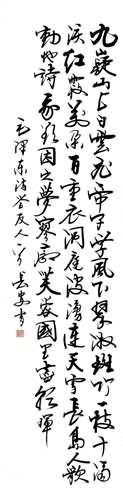 九嶷山上白雲飛帝子乘風下翠微斑竹一枝千滴
淚紅霞萬朵百重衣洞庭波湧連天雪長島人歌
動地詩我欲因之夢寥廓芙蓉國里盡朝暉
毛澤東詩答友人 書